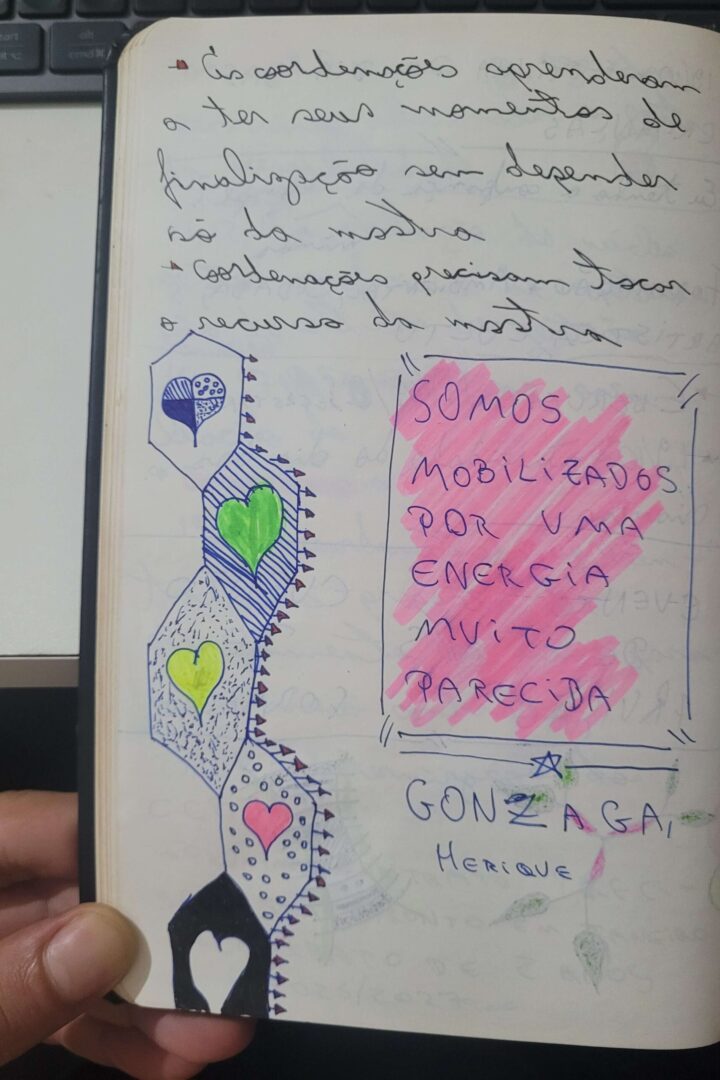 • As coordenações aprenderam
a ter seus momentos de
finalização sem depender
só da mostra
• Coordenações precisam tocar
o recurso da mostra
SOMOS
MOBILIZADOS
POR UMA
ENERGIA
MUITO
PARECIDA
GONZAGA,
HERIQUE